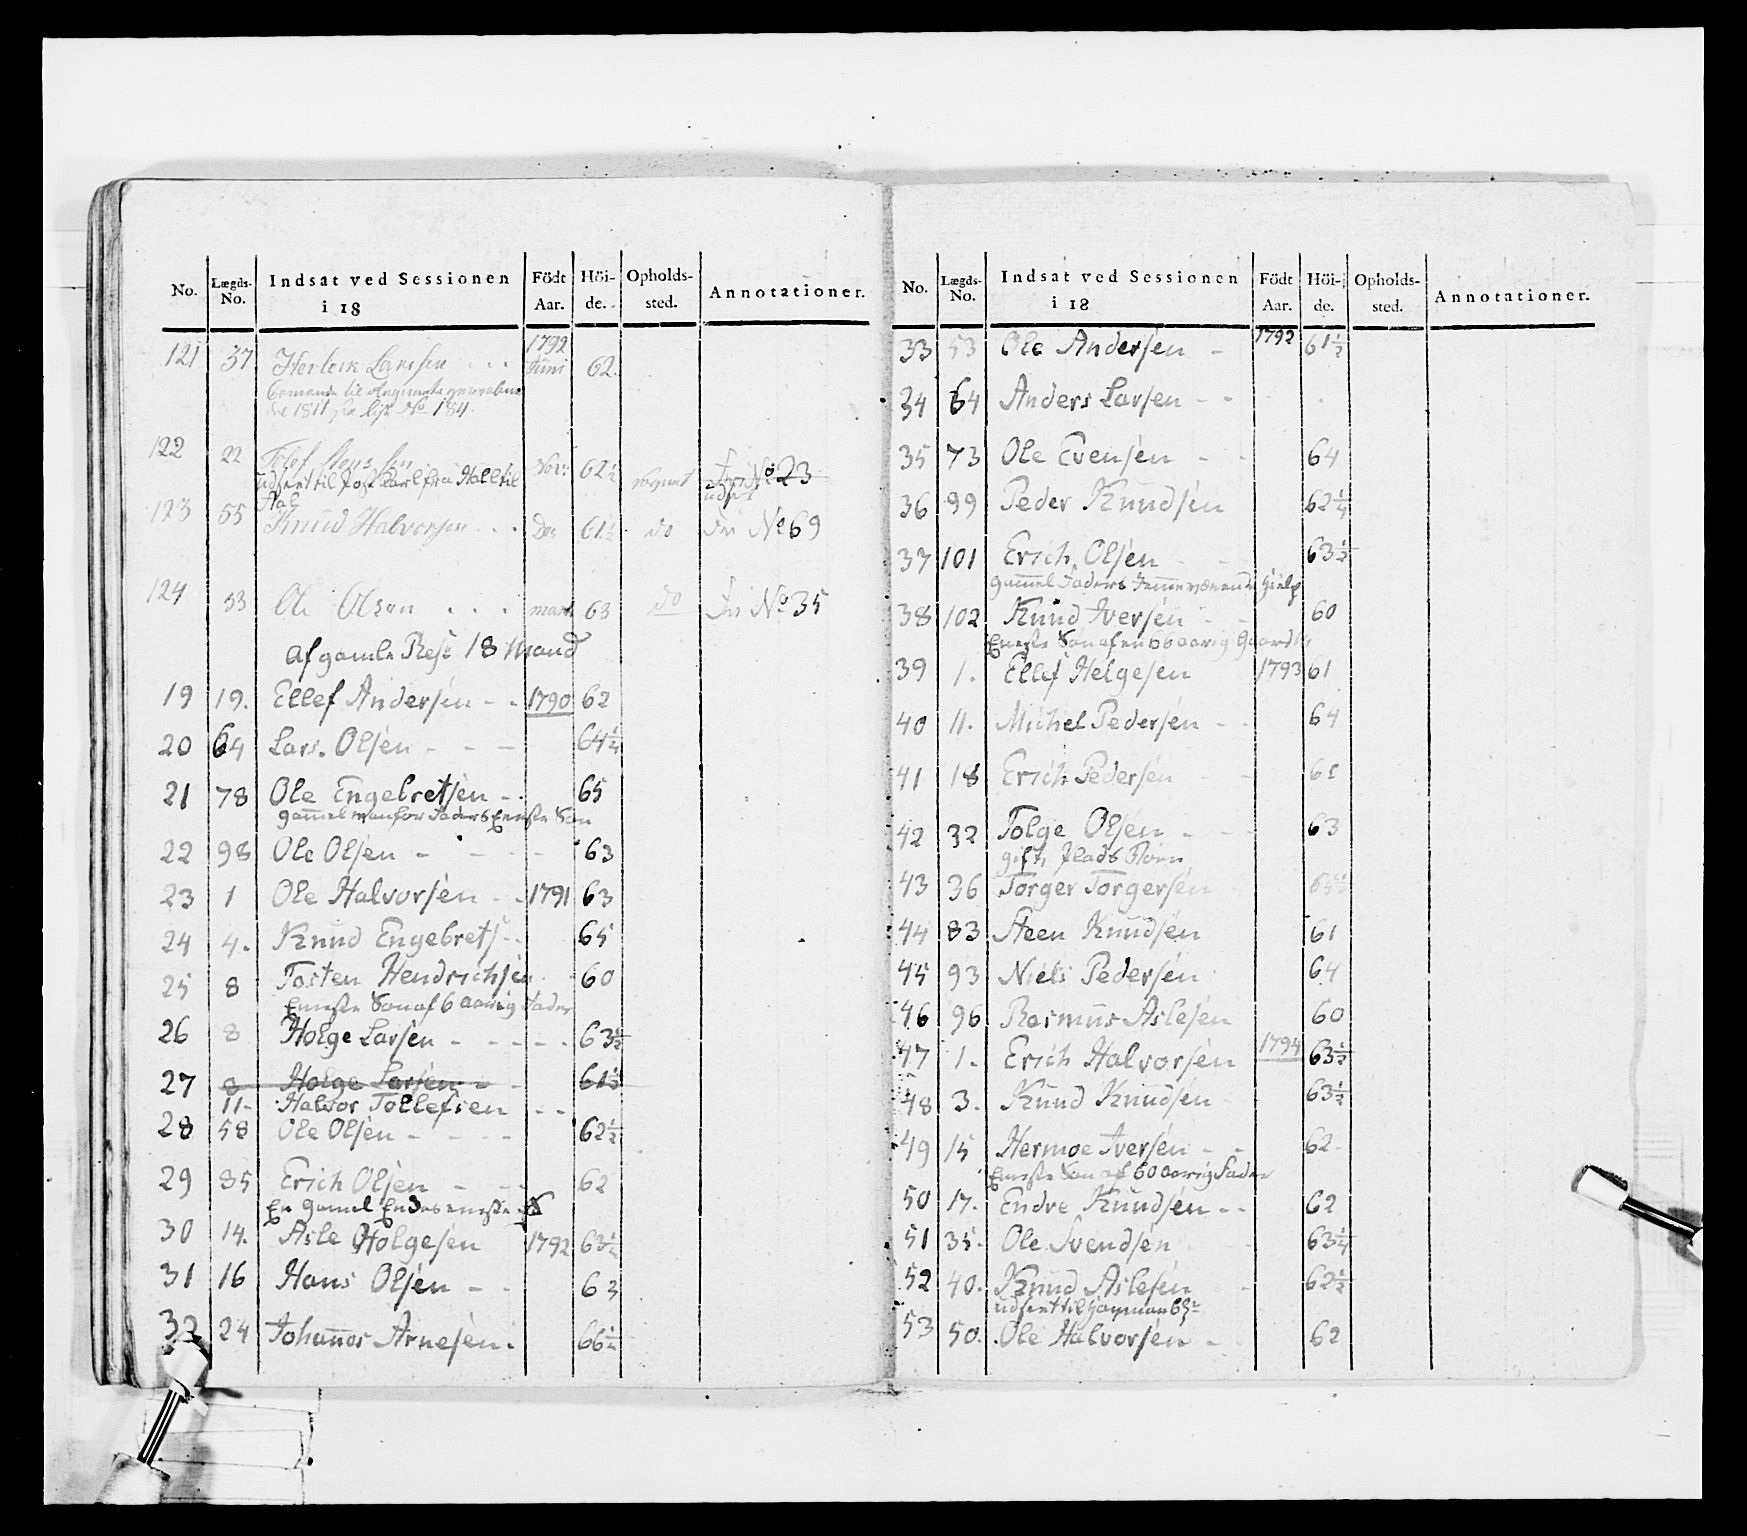 No. Lægds-No. Indsat ved Sessionen i 18 Födt Aar. Höi-de. Opholds-sted. Annotationer.
121 37 Larssen 1792 Juni 62
1811 No 184
122 22 62½ No 23
udsent til fra Hall til
Aal
123 55 Knud Halvorsen Dec 61½ do No 69
124 53 Ole Olsen 63 do No 35
Af gamle Rest 18 Mand
19 19. Ellef Andersen - - 1790 62
20 64 Lars Olsen - - - 64¼
21 78 Ole Engebretsen - - 65
gammel vanfør Faders Eneste Søn
22 98 Ole Olsen - - - - 63
23 1 Ole Halvorsen - - 1791 63
24 4. Knud Engebrets - - 65
25 8 Tosten Hendrichsen - 60
Eneste Søn af 60 aarig Fader
26 8 Holge Larsen - - - - - 63½
27 8 Holge Larsen - - 61½
11- Halvor Tollefsen - -
28 58 Ole Olsen - - - - 62½
29 85 Erich Olsen - - - 62
En gamel Enkes eneste S
30 14. Asle Holgesen 1792 63½
31 16 Hans Olsen - - 63
32 24 Johannes Arnesen. 66½
No. Lægds-No. Indsat ved Sessionen i 18 Födt Aar. Höi-de. Opholds-sted. Annotationer.
33 53 Ole Andersen - 1792 61½
34 64 Anders Larsen - -
35 73 Ole Evensen - - 64
36 99 Peder Knudsen 62¼
37 101 Erich Olsen - - 63½
gammel Faders hielp
38 102 Knud Iversen - - 60
Eneste Søn af en aarig
39 1. Ellef Helgesen 1793 61
40 11. Michel Pedersen - - 64
41 18 Erich Pedersen - - 61
42 32 Tolge Olsen - - - 63
gift, Plads
43 36 Torger Torgersen
44 83 Steen Knudsen 61
45 93 Niels Pedersen 64
46 96 Rasmus Aslesen 60
47 1. Erich Halvorsen 1794 63½
48 3. Knud Knudsen 63½
49 15 Hermoe Iversen - - 62.
Eneste Søn af 60 aarig Fader
50 17. Endre Knudsen - - 62
51 35. Ole Svendsen 63¼
52 40. Knud Aslesen - 62½
udsent til
53 50. Ole Halvorsen - 62